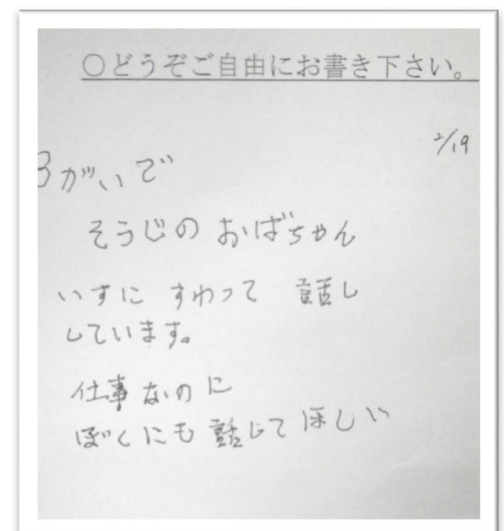 ○どうぞご自由にお書き下さい。
2/19
3がいで
そうじのおばちゃん
いすに すわって 話し
しています。
仕事なのに
ぼくにも 話じて ほしい